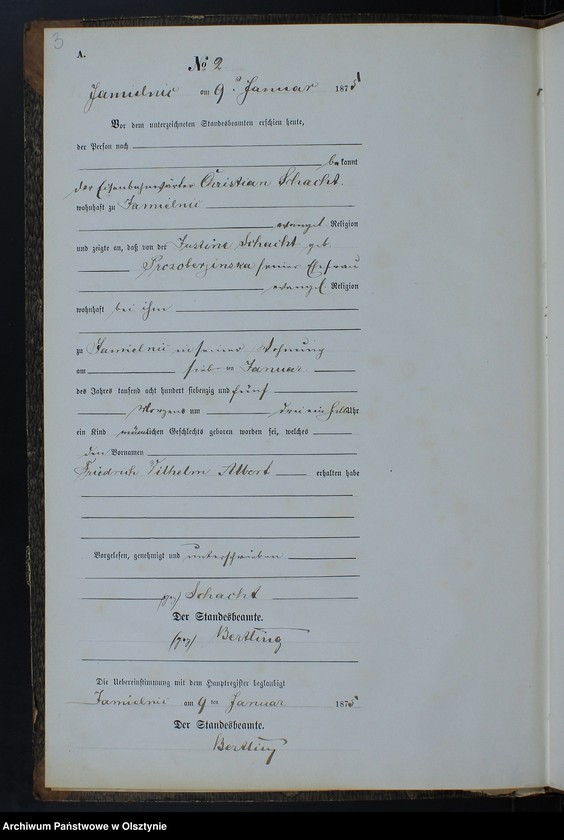 3
A.
№ 2
Jamielnic am 9ᵗ Januar 1875
Vor dem unterzeichneten Standesbeamten erschien heute,
der Person nach
bekannt
der Eisenbahnwärter Christian Schacht.
wohnhaft zu Jamielnic
evangel. Religion
und zeigte an, daß von der Justine Schacht geb
seiner Ehefrau
evangel. Religion
wohnhaft bei ihm
zu Jamielnic in seiner Wohnung
am ten Januar
des Jahres tausend acht hundert siebenzig und fünf
Morgens um drei ein halb Uhr
ein Kind männlichen Geschlechts geboren worden sei, welches
den Vornamen
Friedrich Wilhelm Albert erhalten habe
Vorgelesen, genehmigt und unterschrieben
(gez) Schacht
Der Standesbeamte.
(gez) Bertling
Die Uebereinstimmung mit dem Hauptregister beglaubigt
Jamielnic am 9ten Januar 1875
Der Standesbeamte.
Bertling
Archiwum Państwowe w Olsztynie